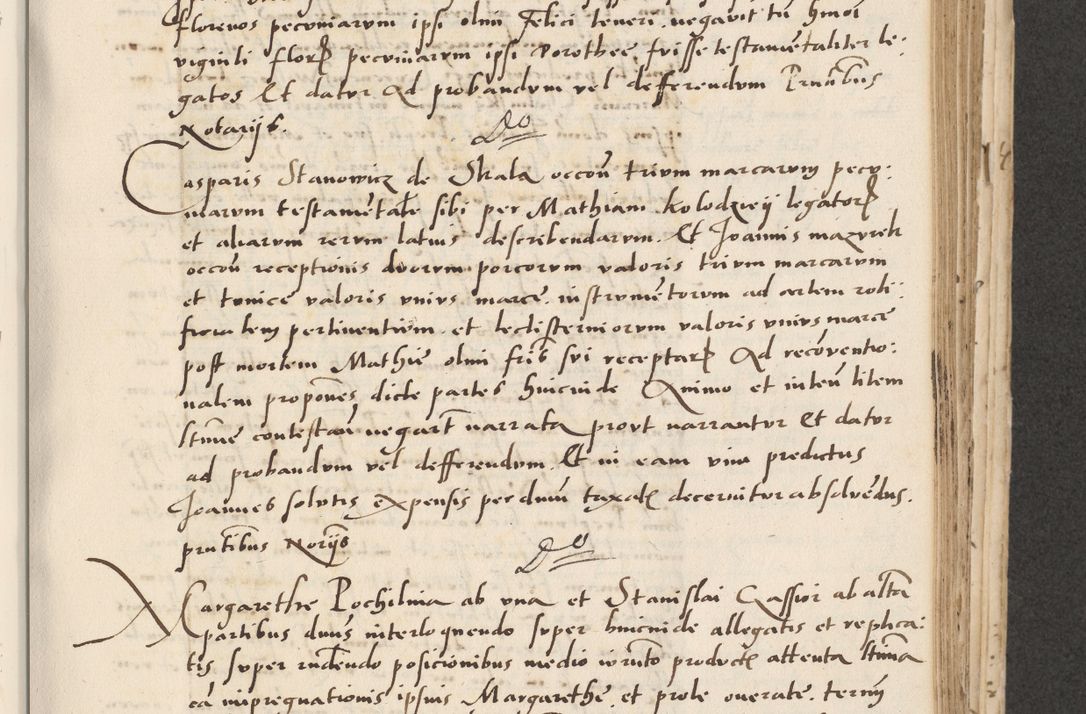 florenos pecuniarum ipsi olim Felici teneri. negavit tn̄ hmōi
viginti flor pecuniarum ipsi Dorothee, fuisse testamētaliter le:
gatos Et datur Ad probandum vel defferendum Prn̄tibus
Notarijs.
Do
Casparis Stanowicz de Skala occoū trium marcarum pecu:
niarum testamētale sibi per Mathiam Kolodzieij legator
et aliarum rerum latius describendarum. Et Joannis mazurek
occoū receptionis duorum porcorum valoris trium marcarum
et tunice valoris unius marce. instrumētorum ad artem roti:
ficialem pertinentium. et lectisterniorum valoris unius marce
post mortem Mathie olim fris sui receptar Ad recōventio:
nalem propōnes dicte partes huicinde Animo et intēn litem
contestan negarūt narrata prout narrantur Et datur
ad probandum vel defferendum. Et in eam vim predictus
Joannes solutis expensis per dnum taxat decernitur absolvēdus.
prn̄tibus Norijs
Do
Margarethe Pochilnia ab una et Stanislai Gassior ab alta
partibus dnus interloquendo super huicinde allegatis et replica:
tis super positionibus medio producte attenta
cā impregnationis ipsius Margarethe, et prole onerate.